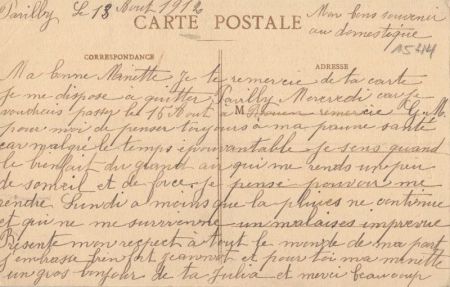 Parilly Le 13 Aout 1912
Mon bons souvenir
au domestique
CARTE POSTALE
1544
CORRESPONDANCE
ADRESSE
Ma bonne Minette Je te remercie de ta carte
je me dispose a quitter Parilly Mercredi car je
voudrais passer les 15 Aout M remercie G. M.
pour moi de penser toujours a ma pauvre santé
car malgré le temps épouvantable Je sens quand
le bienfait du grand air qui me rends un peu
de someil et de force Je pense pouvoir me
rendre Lundi a moins que la pluies ne continue
et qui ne me survienne un malaises imprevue
Présente mon respect à tout le monde de ma part
J'embrasse bien fort Jeannot et pour toi ma minette
un gros bonjour de ta Julia et merci beaucoup